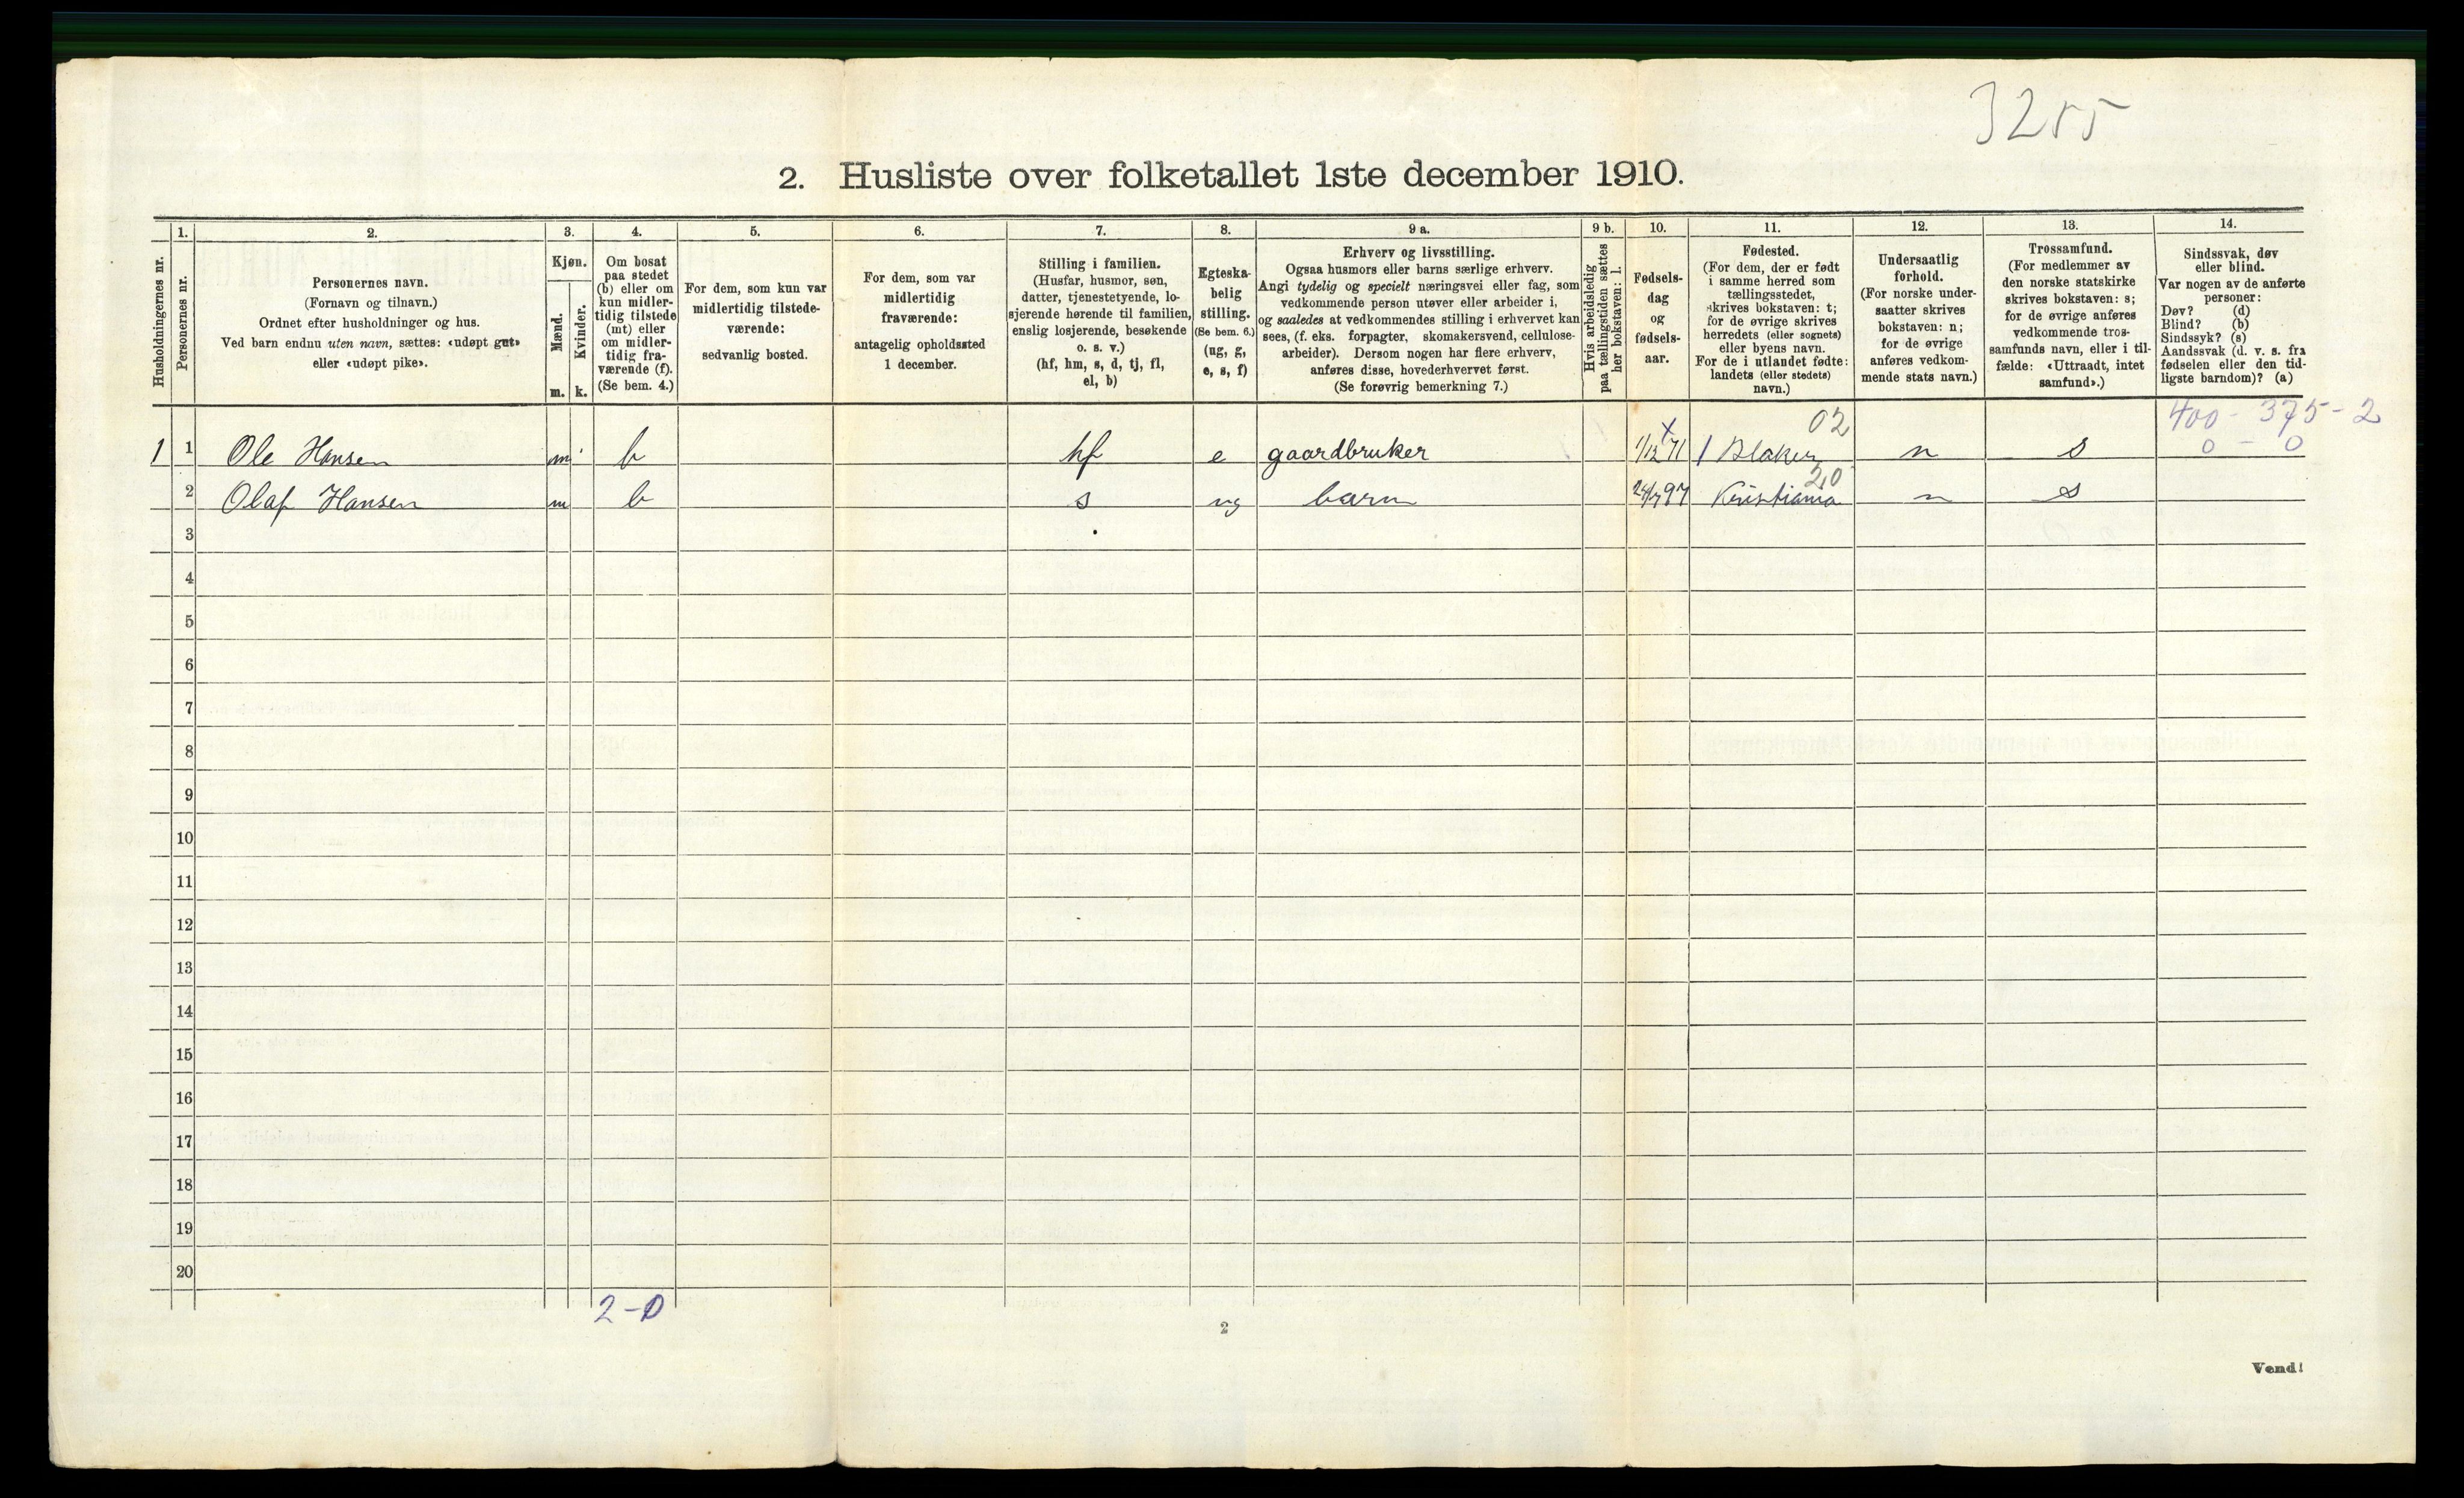 3255
2. Husliste over folketallet 1ste december 1910.
Husholdningernes nr.
1.
Personernes nr.
2.
Personernes navn.
(Fornavn og tilnavn.)
Ordnet efter husholdninger og hus.
Ved barn endnu uten navn, sættes: «udøpt gut»
eller «udøpt pike».
3.
Kjøn.
Mænd.
Kvinder.
m. k.
4.
Om bosat
paa stedet
(b) eller om
kun midler-
tidig tilstede
(mt) eller
om midler-
tidig fra-
værende (f).
(Se bem. 4.)
5.
For dem, som kun var
midlertidig tilstede-
værende:
sedvanlig bosted.
6.
For dem, som var
midlertidig
fraværende:
antagelig opholdssted
1 december.
7.
Stilling i familien.
(Husfar, husmor, søn,
datter, tjenestetyende, lo-
sjerende hørende til familien,
enslig losjerende, besøkende
o. s. v.)
(hf, hm, s, d, tj, fl,
el, b)
8.
Egteska-
belig
stilling.
(Se bem. 6.)
(ug, g,
e, s, f)
9 a.
Erhverv og livsstilling.
Ogsaa husmors eller barns særlige erhverv.
Angi tydelig og specielt næringsvei eller fag, som
vedkommende person utøver eller arbeider i,
og saaledes at vedkommendes stilling i erhvervet kan
sees, (f. eks. forpagter, skomakersvend, cellulose-
arbeider). Dersom nogen har flere erhverv,
anføres disse, hovederhvervet først.
(Se forøvrig bemerkning 7.)
9 b.
Hvis arbeidsledig
paa tællingstiden sættes
her bokstaven: l.
10.
Fødsels-
dag
og
fødsels-
aar.
11.
Fødested.
(For dem, der er født
i samme herred som
tællingsstedet,
skrives bokstaven: t;
for de øvrige skrives
herredets (eller sognets)
eller byens navn.
For de i utlandet fødte:
landets (eller stedets)
navn.)
12.
Undersaatlig
forhold.
(For norske under-
saatter skrives
bokstaven: n;
for de øvrige
anføres vedkom-
mende stats navn.)
13.
Trossamfund.
(For medlemmer av
den norske statskirke
skrives bokstaven: s;
for de øvrige anføres
vedkommende tros-
samfunds navn, eller i til-
fælde: «Uttraadt, intet
samfund».)
14.
Sindssvak, døv
eller blind.
Var nogen av de anførte
personer:
Døv? (d)
Blind? (b)
Sindssyk? (s)
Aandssvak (d. v. s. fra
fødselen eller den tid-
ligste barndom)? (a)
02 400 - 375 - 2
1 1 Ole Hansen m b hf e gaardbruker 1/12 71 Blaker n s 0 - 0
20
2 Olaf Hansen m b s ug barn 24/7 97 Kristiania n s
3
4
5
6
7
8
9
10
11
12
13
14
15
16
17
18
19
20
2-0
2
Vend!